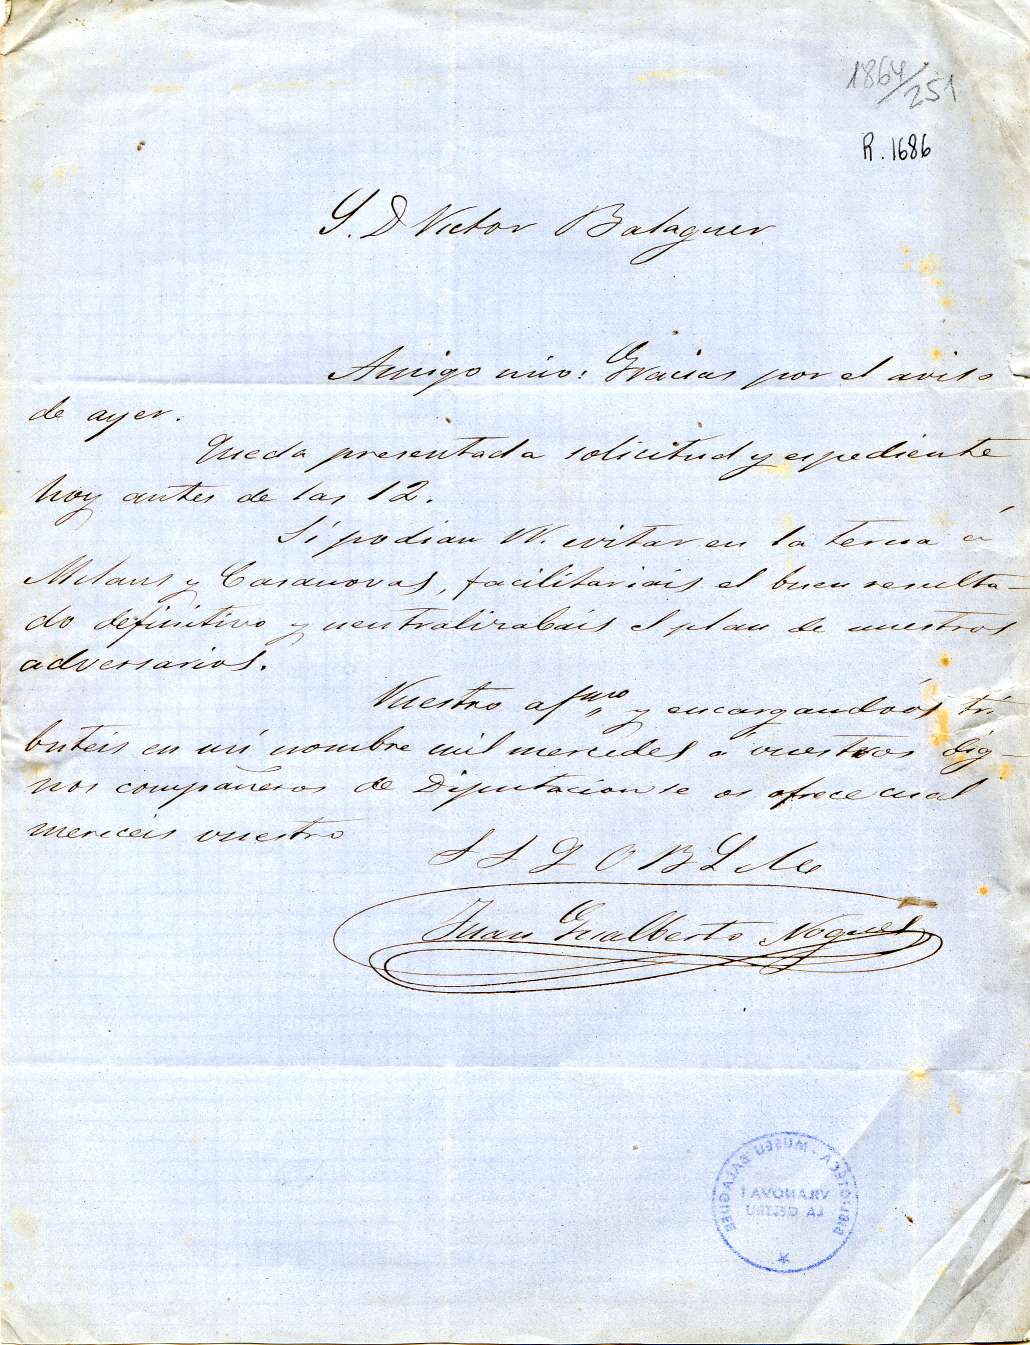 1864/251
R. 1686
S. D Victor Balaguer
Amigo mio: Gracias por el aviso
de ayer.
Queda presentada solicitud y espediente
hoy antes de las 12.
Si podian VV. evitar en la terna á
Milans y Casanovas, facilitariais el buen resulta-
do definitivo y neutralizabais el plan de nuestros
adversarios.
Vuestro afmo y encargandoos tri
buteis en mi nombre mil mercedes a vuestros dig-
nos compañeros de Diputacion se os ofrece cual
mereceis vuestro
S S Q B L M
Juan Gualberto Nogués
BIBLIOTECA - MUSEU BALAGUER
VILANOVA I
LA GELTRU